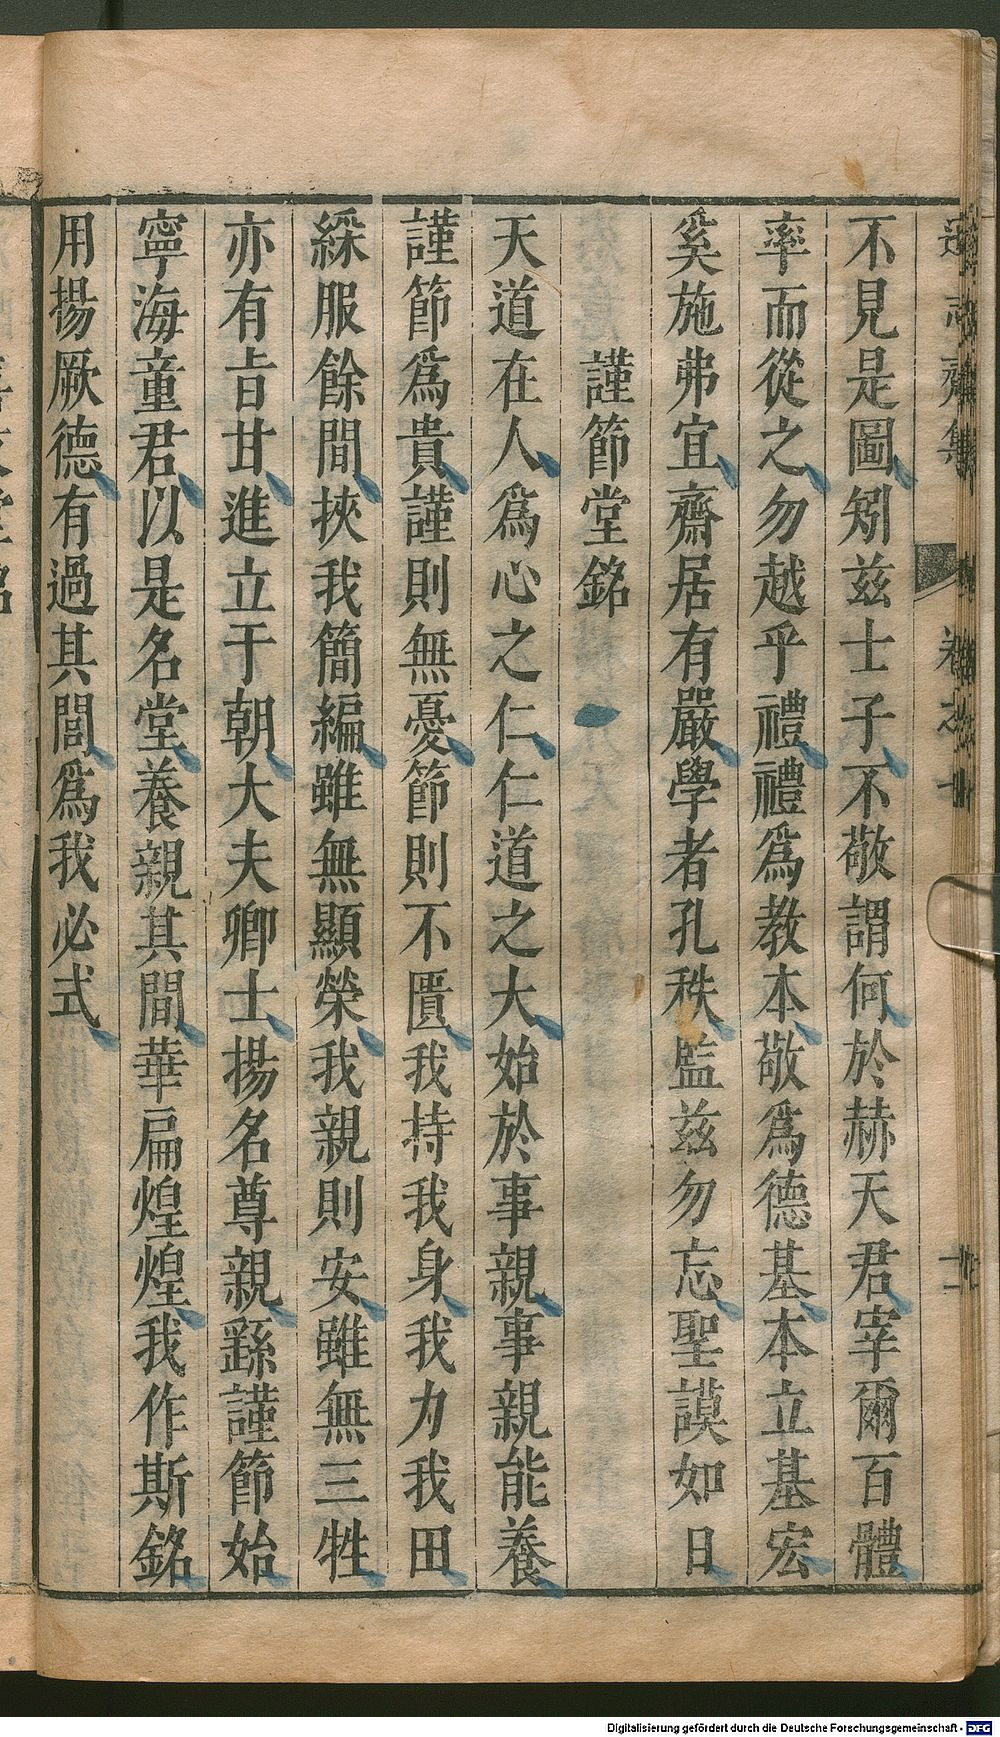 不見是圖矧兹士子不敬謂何於赫天君宰爾百體
率而從之勿越乎禮禮爲教本敬爲德基本立基宏
奚施弗宜齋居有嚴學者孔秩監兹勿忘聖謨如日
謹節堂銘
天道在人人爲心之仁仁道之大始於事親事親能養
謹節爲貴謹則無憂節則不匱我持我身我力我田
綵服餘閒挾我簡編雖無顯榮我親則安雖無三牲
亦有旨甘進立于朝大夫卿士揚名尊親繇謹節始
寧海童君以是名堂養親其間華扁煌煌我作斯銘
用揚厥德有過其閭爲我必式
Digitalisierung gefördert durch die Deutsche Forschungsgemeinschaft - DFG